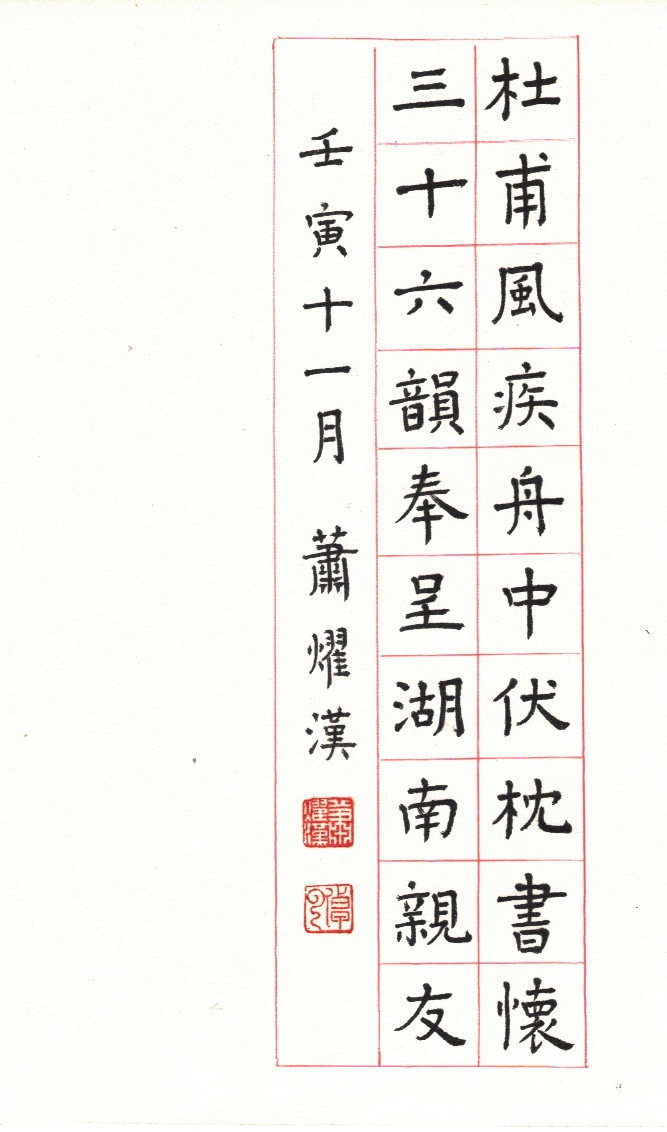 杜甫風疾舟中伏枕書懷
三十六韻奉呈湖南親友
壬寅十一月 蕭燿漢
蕭燿漢